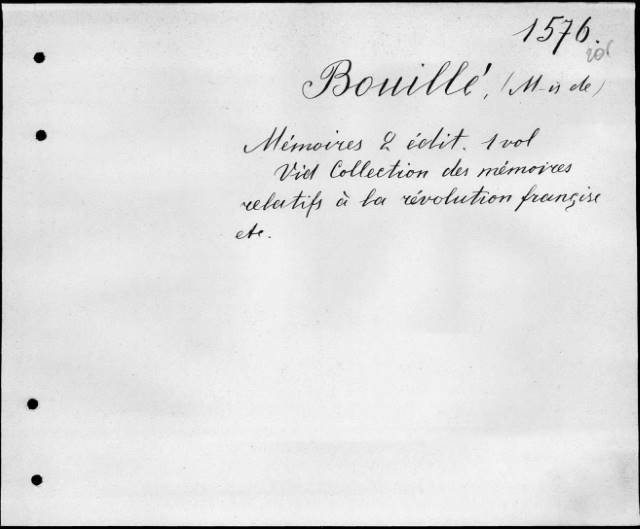 1576.
Bouillé, (M-is de)
Mémoires 2 édit. 1 vol
Vid Collection des mémoires
relatifs à la révolution françise
etc.